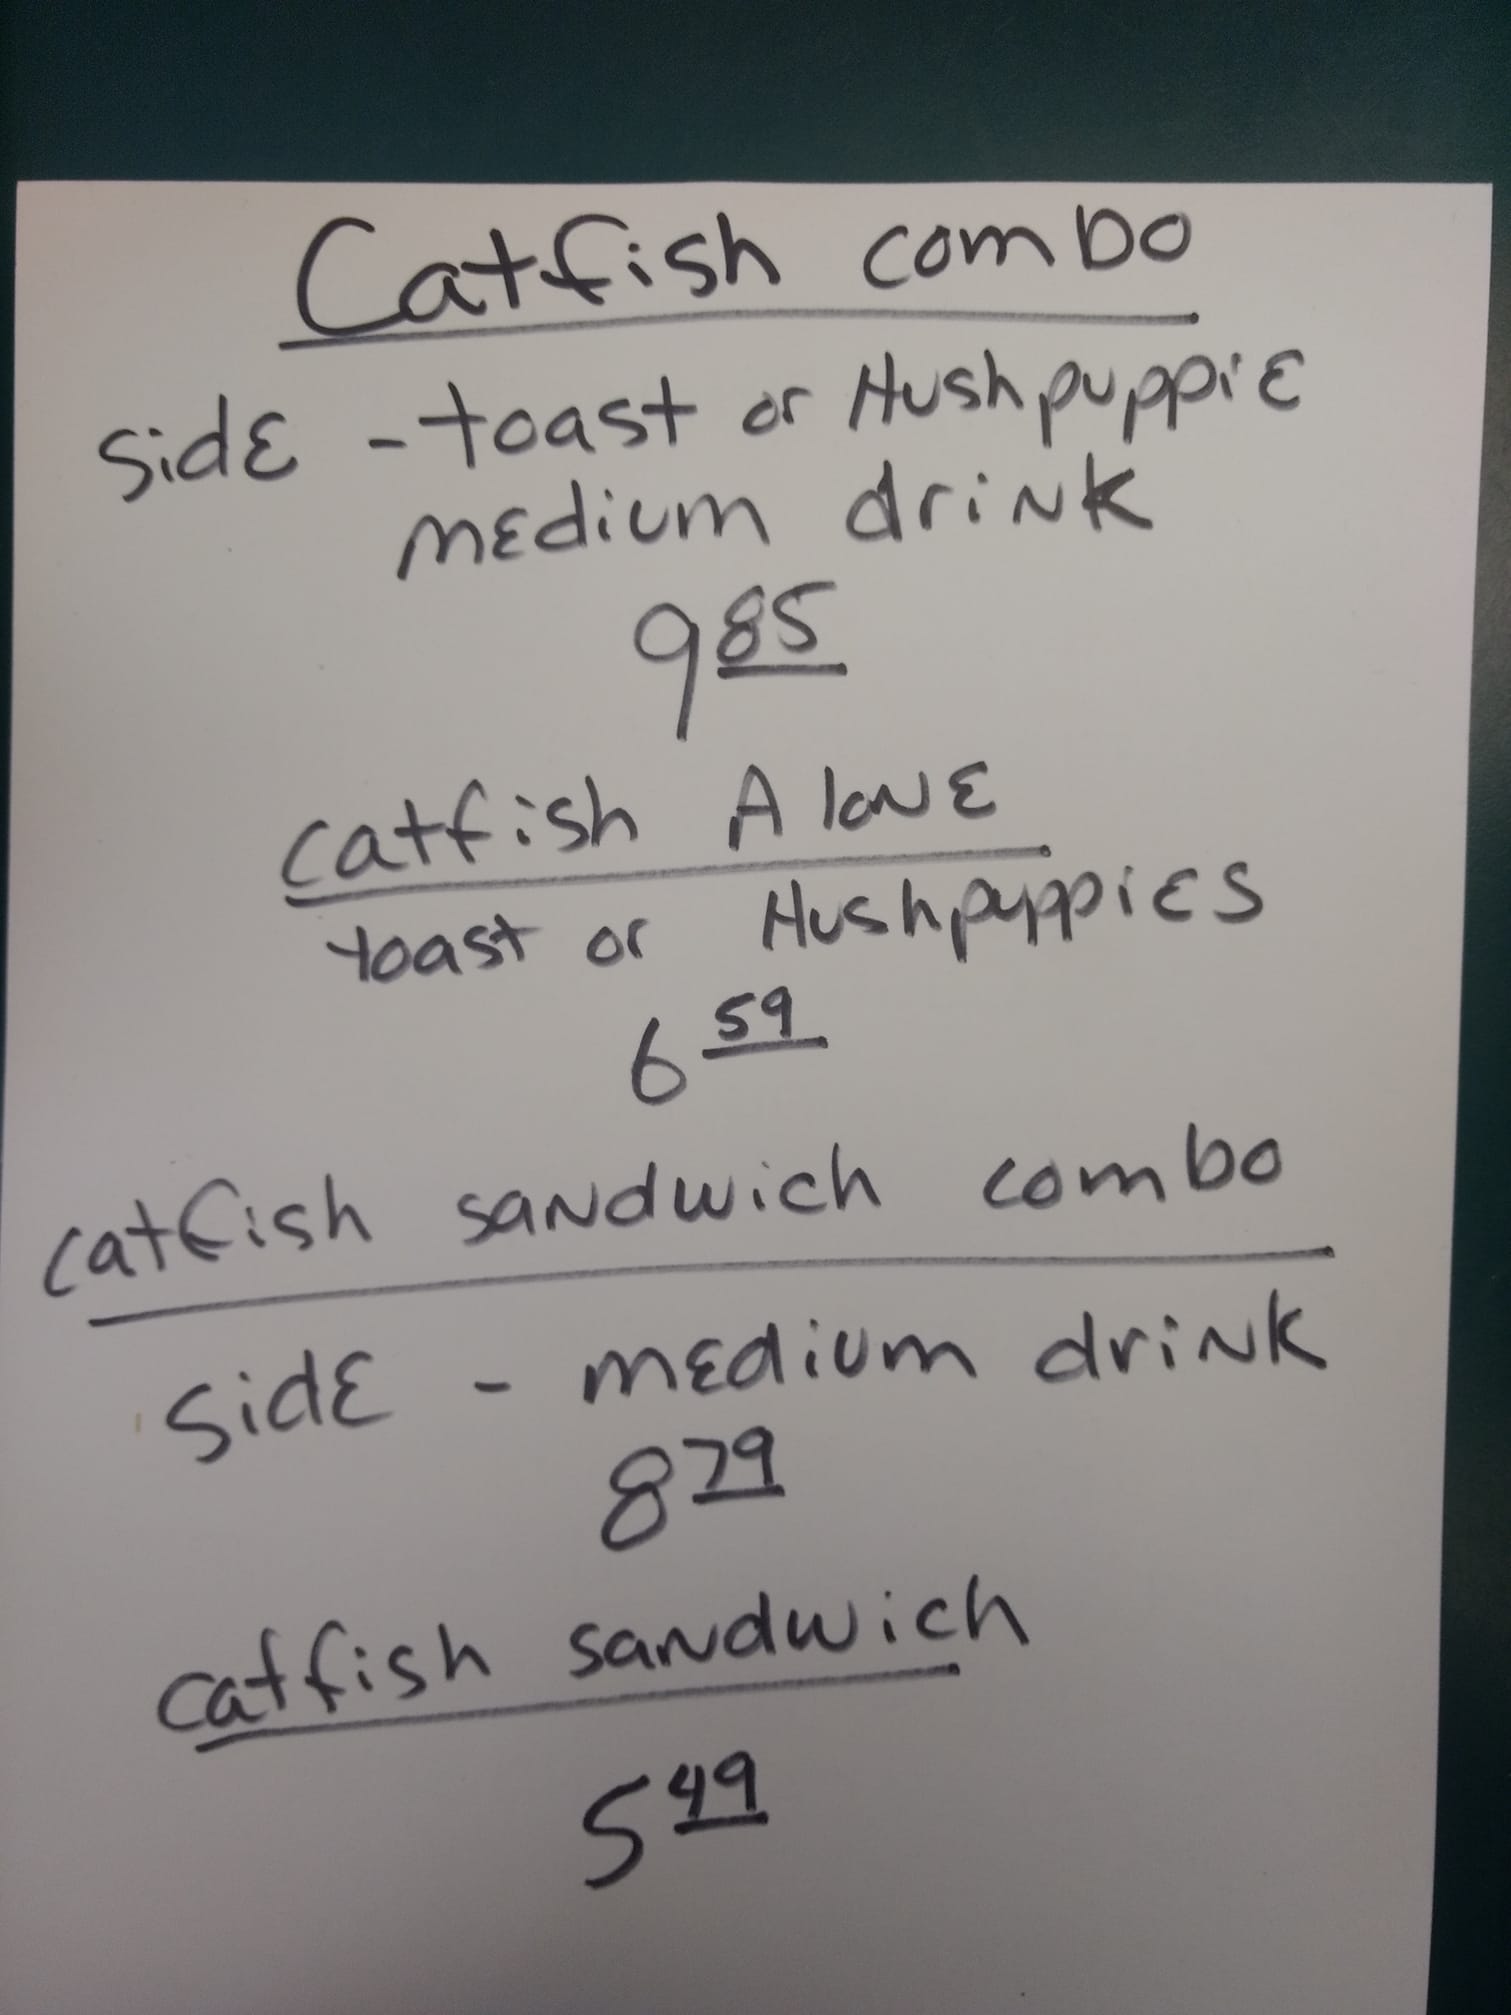 Catfish combo
side - toast or Hushpuppie
medium drink
9 85
catfish Alone
toast or Hushpuppies
6 59
catfish sandwich combo
side - medium drink
8 79
catfish sandwich
5 49